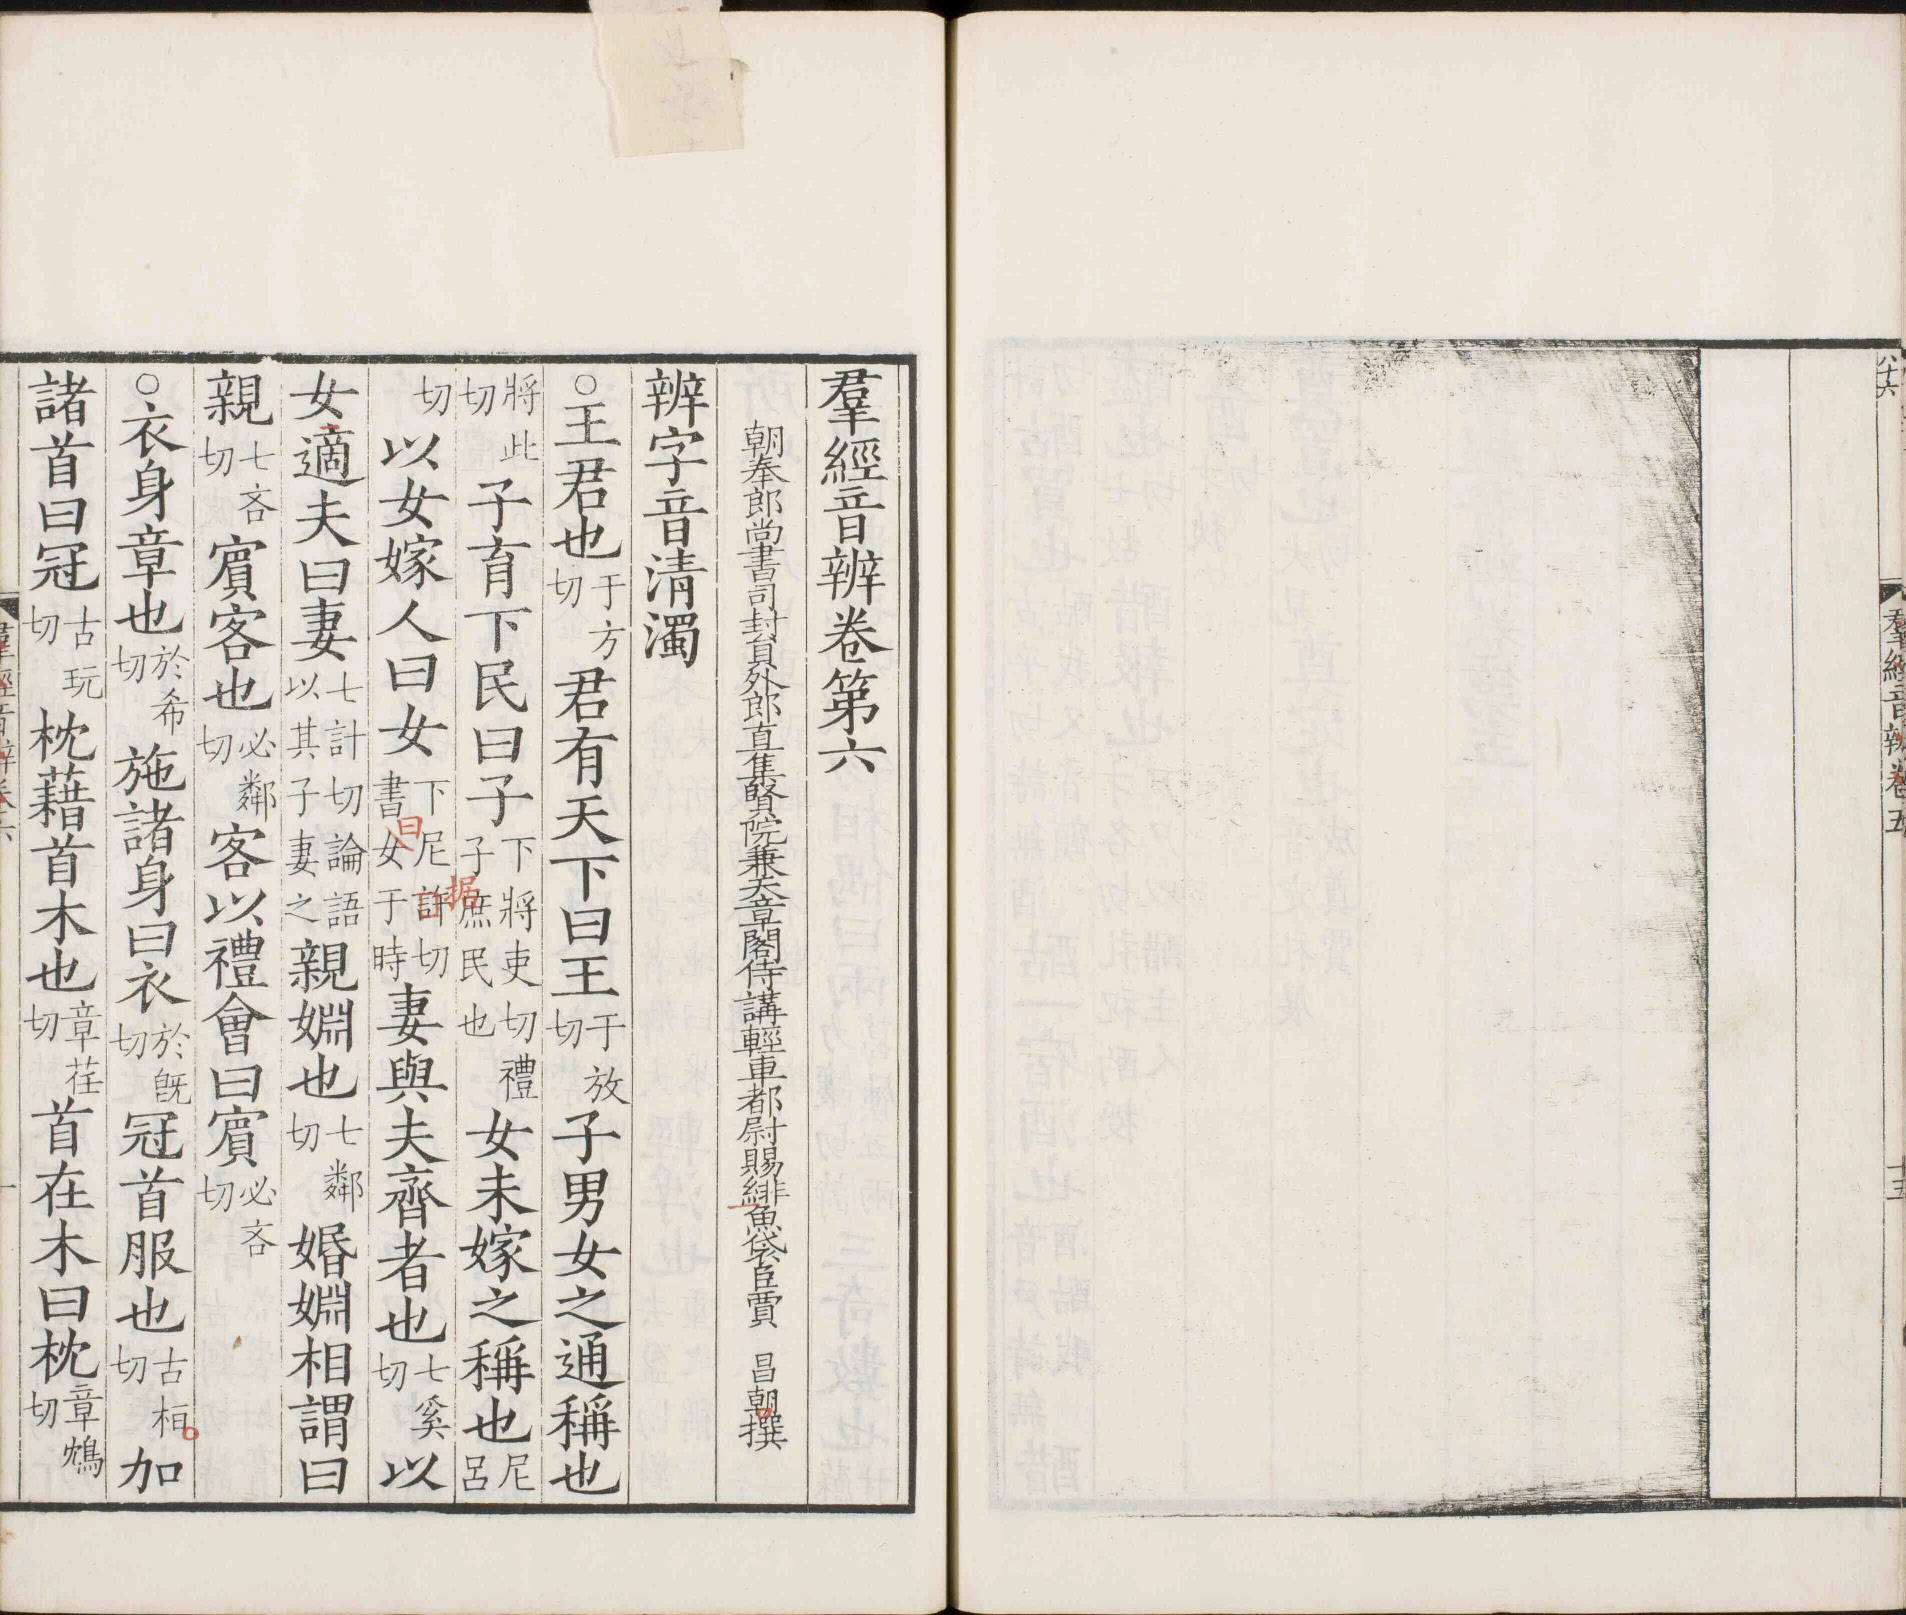 羣經音辨卷五
十五
羣經音辨卷第六
朝奉郎尚書司封員外郎直集賢院兼天章閣侍講輕車都尉賜緋魚袋臣賈 昌朝撰
辨字音清濁
○王君也于方切君有天下曰王于放切子男女之通稱也
將此切子育下民曰子下將吏切禮子庶民也女未嫁之稱也尼呂
切以女嫁人曰女下尼詐切書女于時妻與夫齊者也七奚切以
女適夫曰妻七計切論語以其子妻之親婣也七鄰切婚婣相謂曰
親七吝切賔客也必鄰切客以禮會曰賔必吝切
○衣身章也於希切施諸身曰衣於旣切冠首服也古桓切加
諸首曰冠古玩切枕藉首木也章荏切首在木曰枕章鴆切
羣經音辨卷六
一
曰
据